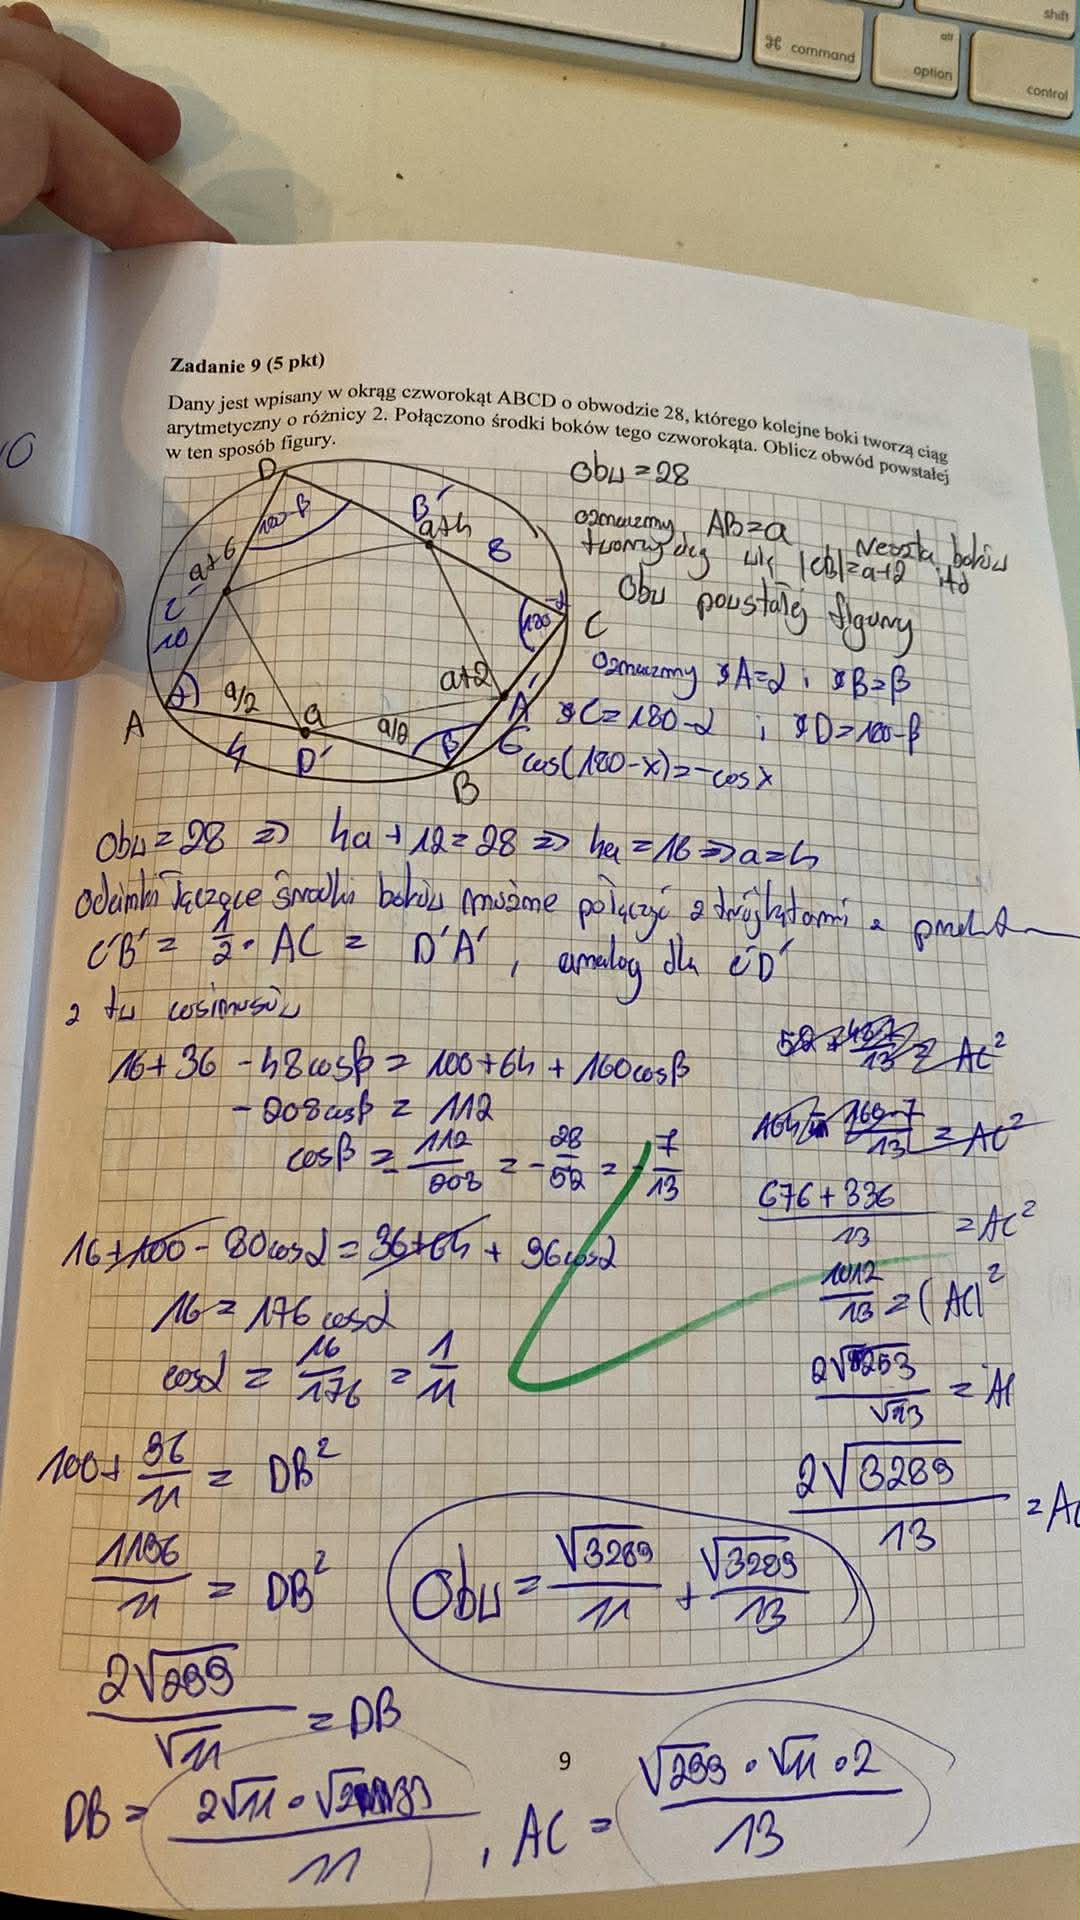 shift
⌘ command
alt
option
control
10
Zadanie 9 (5 pkt)
Dany jest wpisany w okrąg czworokąt ABCD o obwodzie 28, którego kolejne boki tworzą ciąg
arytmetyczny o różnicy 2. Połączono środki boków tego czworokąta. Oblicz obwód powstałej
w ten sposób figury.
D
180-β
B'
a+4
8
a+6
C'
10
180-α
C
a+2
A'
6
A
α
a/2
a
a/2
β
4
D'
B
Obw = 28
oznaczmy AB = a
tworzą ciąg więc |CB| = a+2 itd
Obw powstałej figury
Oznaczmy ∢A = α i ∢B = β
∢C = 180-α i ∢D = 180-β
cos(180-x) = -cosx
Obw = 28 => 4a + 12 = 28 => 4a = 16 => a = 4
odcinki łączące środki boków możemy połączyć z trójkątami
C'B' = 1/2 · AC = D'A', analog dla C'D'
z tw cosinusów
16 + 36 - 48cosβ = 100 + 64 + 160cosβ
-208cosβ = 112
cosβ = -112/208 = -28/52 = -7/13
16 + 100 - 80cosα = 36 + 64 + 96cosα
16 = 176 cosα
cosα = 16/176 = 1/11
100 + 96/11 = DB²
1196/11 = DB²
2√299/√11 = DB
DB = 2√11 · √299/11, AC = √299 · √11 · 2/13
(676 + 336)/13 = AC²
1012/13 = (AC)²
2√253/√13 = AC
2√3289/13 = AC
Obw = √3289/11 + √3289/13
9